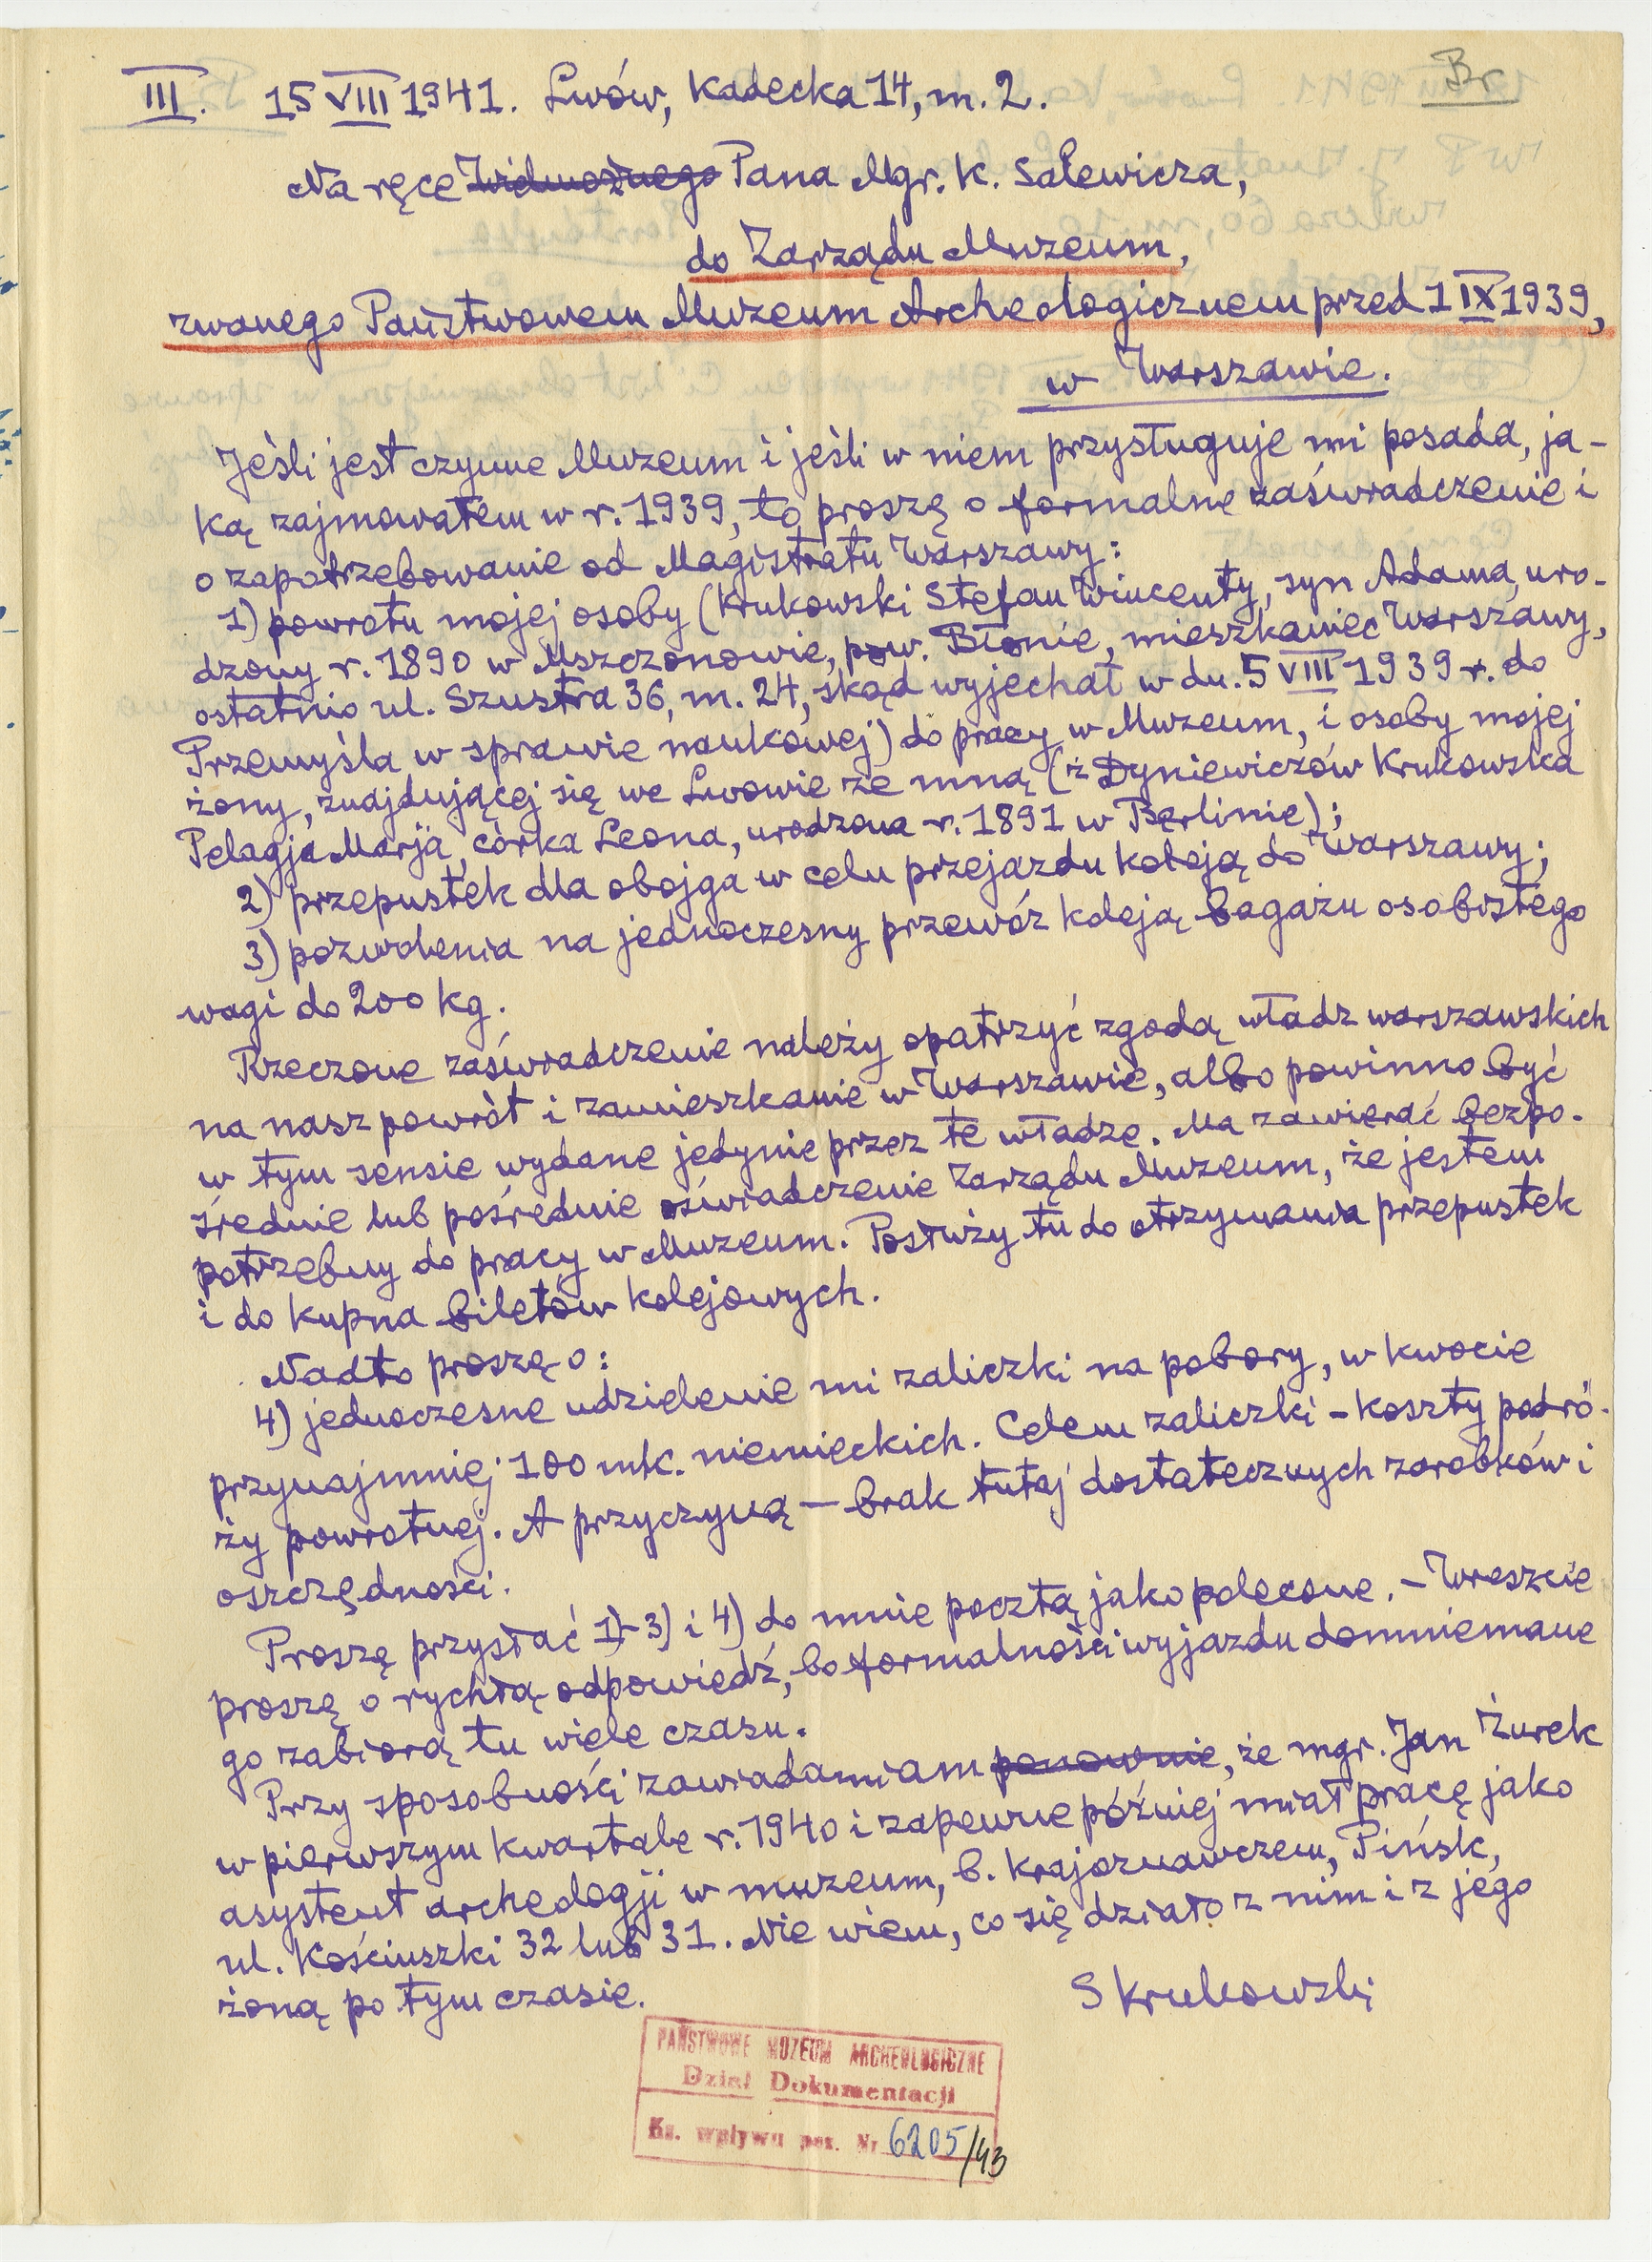 Br
III. 15 VIII 1941. Lwów, Kadecka 14, m. 2.
Na ręce Wielmożnego Pana Mgr. K. Salewicza,
do Zarządu Muzeum,
zwanego Państwowem Muzeum Archeologicznem przed 1 IX 1939,
w Warszawie.
Jeśli jest czynne Muzeum i jeśli w niem przysługuje mi posada, ja-
ką zajmowałem w r. 1939, to proszę o formalne zaświadczenie i
o zapotrzebowanie od Magistratu Warszawy:
1) powrotu mojej osoby (Krukowski Stefan Wincenty, syn Adama, uro-
dzony r. 1890 w Mszczonowie, pow. Błonie, mieszkaniec Warszawy,
ostatnio ul. Szustra 36, m. 24, skąd wyjechał w dn. 5 VIII 1939 r. do
Przemyśla w sprawie naukowej) do pracy w Muzeum, i osoby mojej
żony, znajdującej się we Lwowie ze mną (z Dyniewiczów Krukowska
Pelagja Marja, córka Leona, urodzona r. 1891 w Berlinie);
2) przepustek dla obojga w celu przejazdu koleją do Warszawy;
3) pozwolenia na jednoczesny przewóz koleją bagażu osobistego
wagi do 200 kg.
Rzeczone zaświadczenie należy opatrzyć zgodą władz warszawskich
na nasz powrót i zamieszkanie w Warszawie, albo powinno być
w tym sensie wydane jedynie przez te władze. Ma zawierać bezpo-
średnie lub pośrednie oświadczenie Zarządu Muzeum, że jestem
potrzebny do pracy w Muzeum. Posłuży tu do otrzymania przepustek
i do kupna biletów kolejowych.
Nadto proszę o:
4) jednoczesne udzielenie mi zaliczki na pobory, w kwocie
przynajmniej 100 mk. niemieckich. Celem zaliczki – koszty podró-
ży powrotnej. A przyczyną – brak tutaj dostatecznych zarobków i
oszczędności.
Proszę przysłać 1)-3) i 4) do mnie pocztą jako polecone. – Wreszcie
proszę o rychłą odpowiedź, bo formalności wyjazdu domniemane
go zabiorą tu wiele czasu.
Przy sposobności zawiadamiam ponownie, że mgr. Jan Żurek
w pierwszym kwartale r. 1940 i zapewne później miał pracę jako
asystent archeologji w muzeum, b. krajoznawczem, Pińsk,
ul. Kościuszki 32 lub 31. Nie wiem, co się działo z nim i z jego
żoną po tym czasie.
S Krukowski
PAŃSTWOWE MUZEUM ARCHEOLOGICZNE
Dział Dokumentacji
Ks. wpływu poz. Nr 6205/43